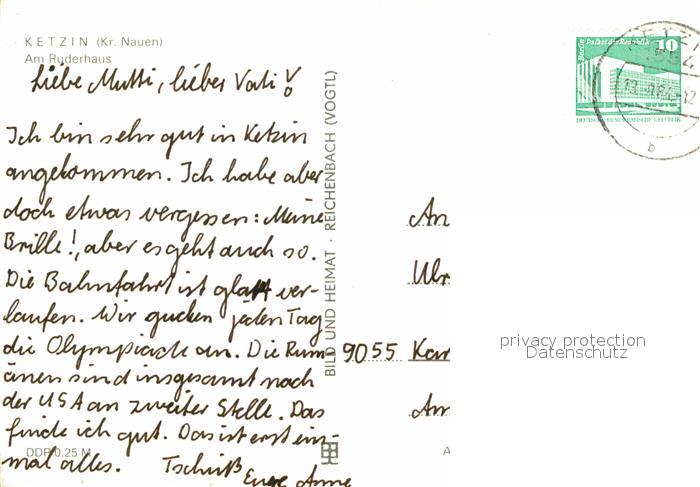 KETZIN (Kr. Nauen)
Am Ruderhaus
Liebe Mutti, lieber Vati!
Ich bin sehr gut in Ketzin
angekommen. Ich habe aber
doch etwas vergessen: Meine
Brille!, aber es geht auch so.
Die Bahnfahrt ist glatt ver-
laufen. Wir gucken jeden Tag
die Olympiade an. Die Rum-
änen sind insgesamt nach
der USA an zweiter Stelle. Das
finde ich gut. Das ist erst ein-
mal alles. Tschüß
Eure Anne
DDR 0,25 M
BILD UND HEIMAT · REICHENBACH (VOGTL)
Berlin Palast der Republik 10
DEUTSCHE DEMOKRATISCHE REPUBLIK
KETZI
b
An
Ulr
9055 Kar
Am
A
privacy protection
Datenschutz